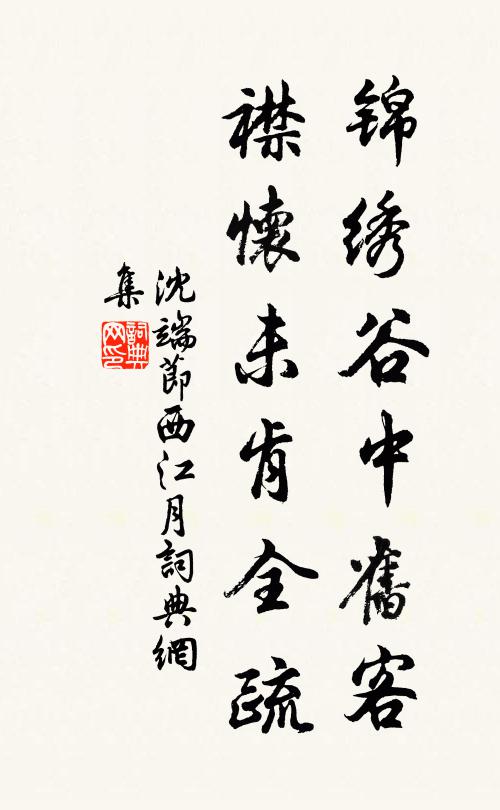 锦绣谷中舊客
襟懷未肯全疏
沈端節西江月詞典網
集
詞典網印